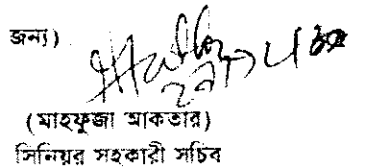 জন্য)
(মাহফুজা আকতার)
সিনিয়র সহকারী সচিব